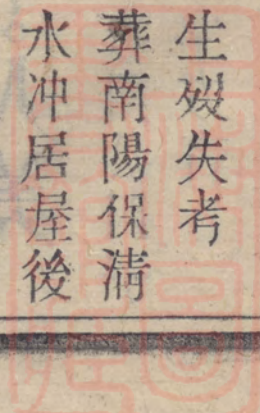 生殁失考
葬南陽保清
水冲居屋後